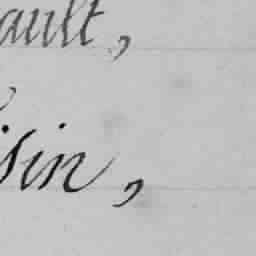 ault,
isin,